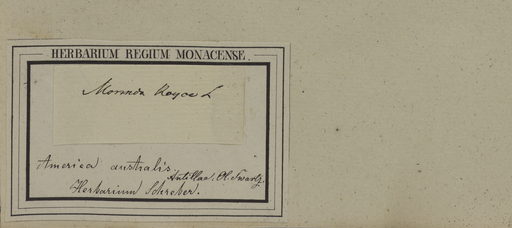 HERBARIUM REGIUM MONACENSE.
Morinda Royoc L
America australis.
Antillae. Ol. Swartz.
Herbarium Schreber.